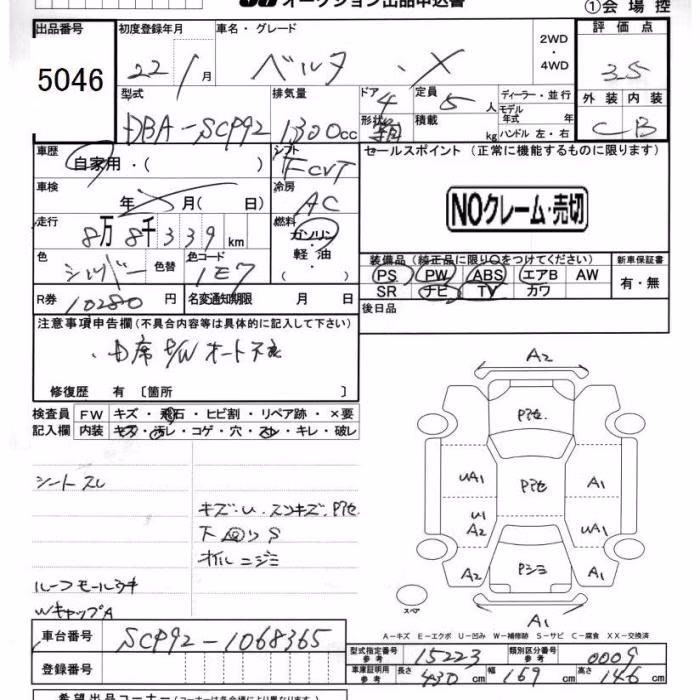 オークション出品申込書
①会場控
出品番号
5046
初度登録年月
22年1月
車名・グレード
ベルタ ・X
2WD
・
4WD
評価点
3.5
外装 内装
C B
型式
DBA-SCP92
排気量
1300cc
ドア 4
形状 箱
定員 5人
積載 kg
ディーラー・並行
モデル
年式 年
ハンドル 左・右
車歴
自家用・( )
シフト
FCVT
セールスポイント(正常に機能するものに限ります)
NOクレーム・売切
車検
年 月( 日)
冷房
AC
走行
8万8千339km
燃料
ガソリン
・
軽油
・
( )
色
シルバー
色替
色コード
1E7
装備品(純正品に限り○をつけてください)
PS PW ABS エアB AW
SR ナビ TV カワ
新車保証書
有・無
後日品
R券 10280円
名変通知期限 月 日
注意事項申告欄(不具合内容等は具体的に記入して下さい)
・D席P/Wオート不良
修復歴 有 〔箇所 〕
検査員
記入欄
FW キズ・飛石・ヒビ割・リペア跡・×要
内装 キズ・汚レ・コゲ・穴・スレ・キレ・破レ
シートスレ
キズ・U.スリキズ.Pアセ
下回りS
オイルニジミ
ルーフモールウキ
WキャップA
A2
Pアセ.
UA1
Pアセ
A1
U1
A2
UA1
A2
Pシミ
A1
スペア
A1
A-キズ E-エクボ U-凹み W-補修跡 S-サビ C-腐食 XX-交換済
車台番号
SCP92-1068365
登録番号
型式指定番号
参考
15223
類別区分番号
参考
0009
車庫証明用
参考
長さ 430cm
幅 169cm
高さ 146cm
希望出品コーナー